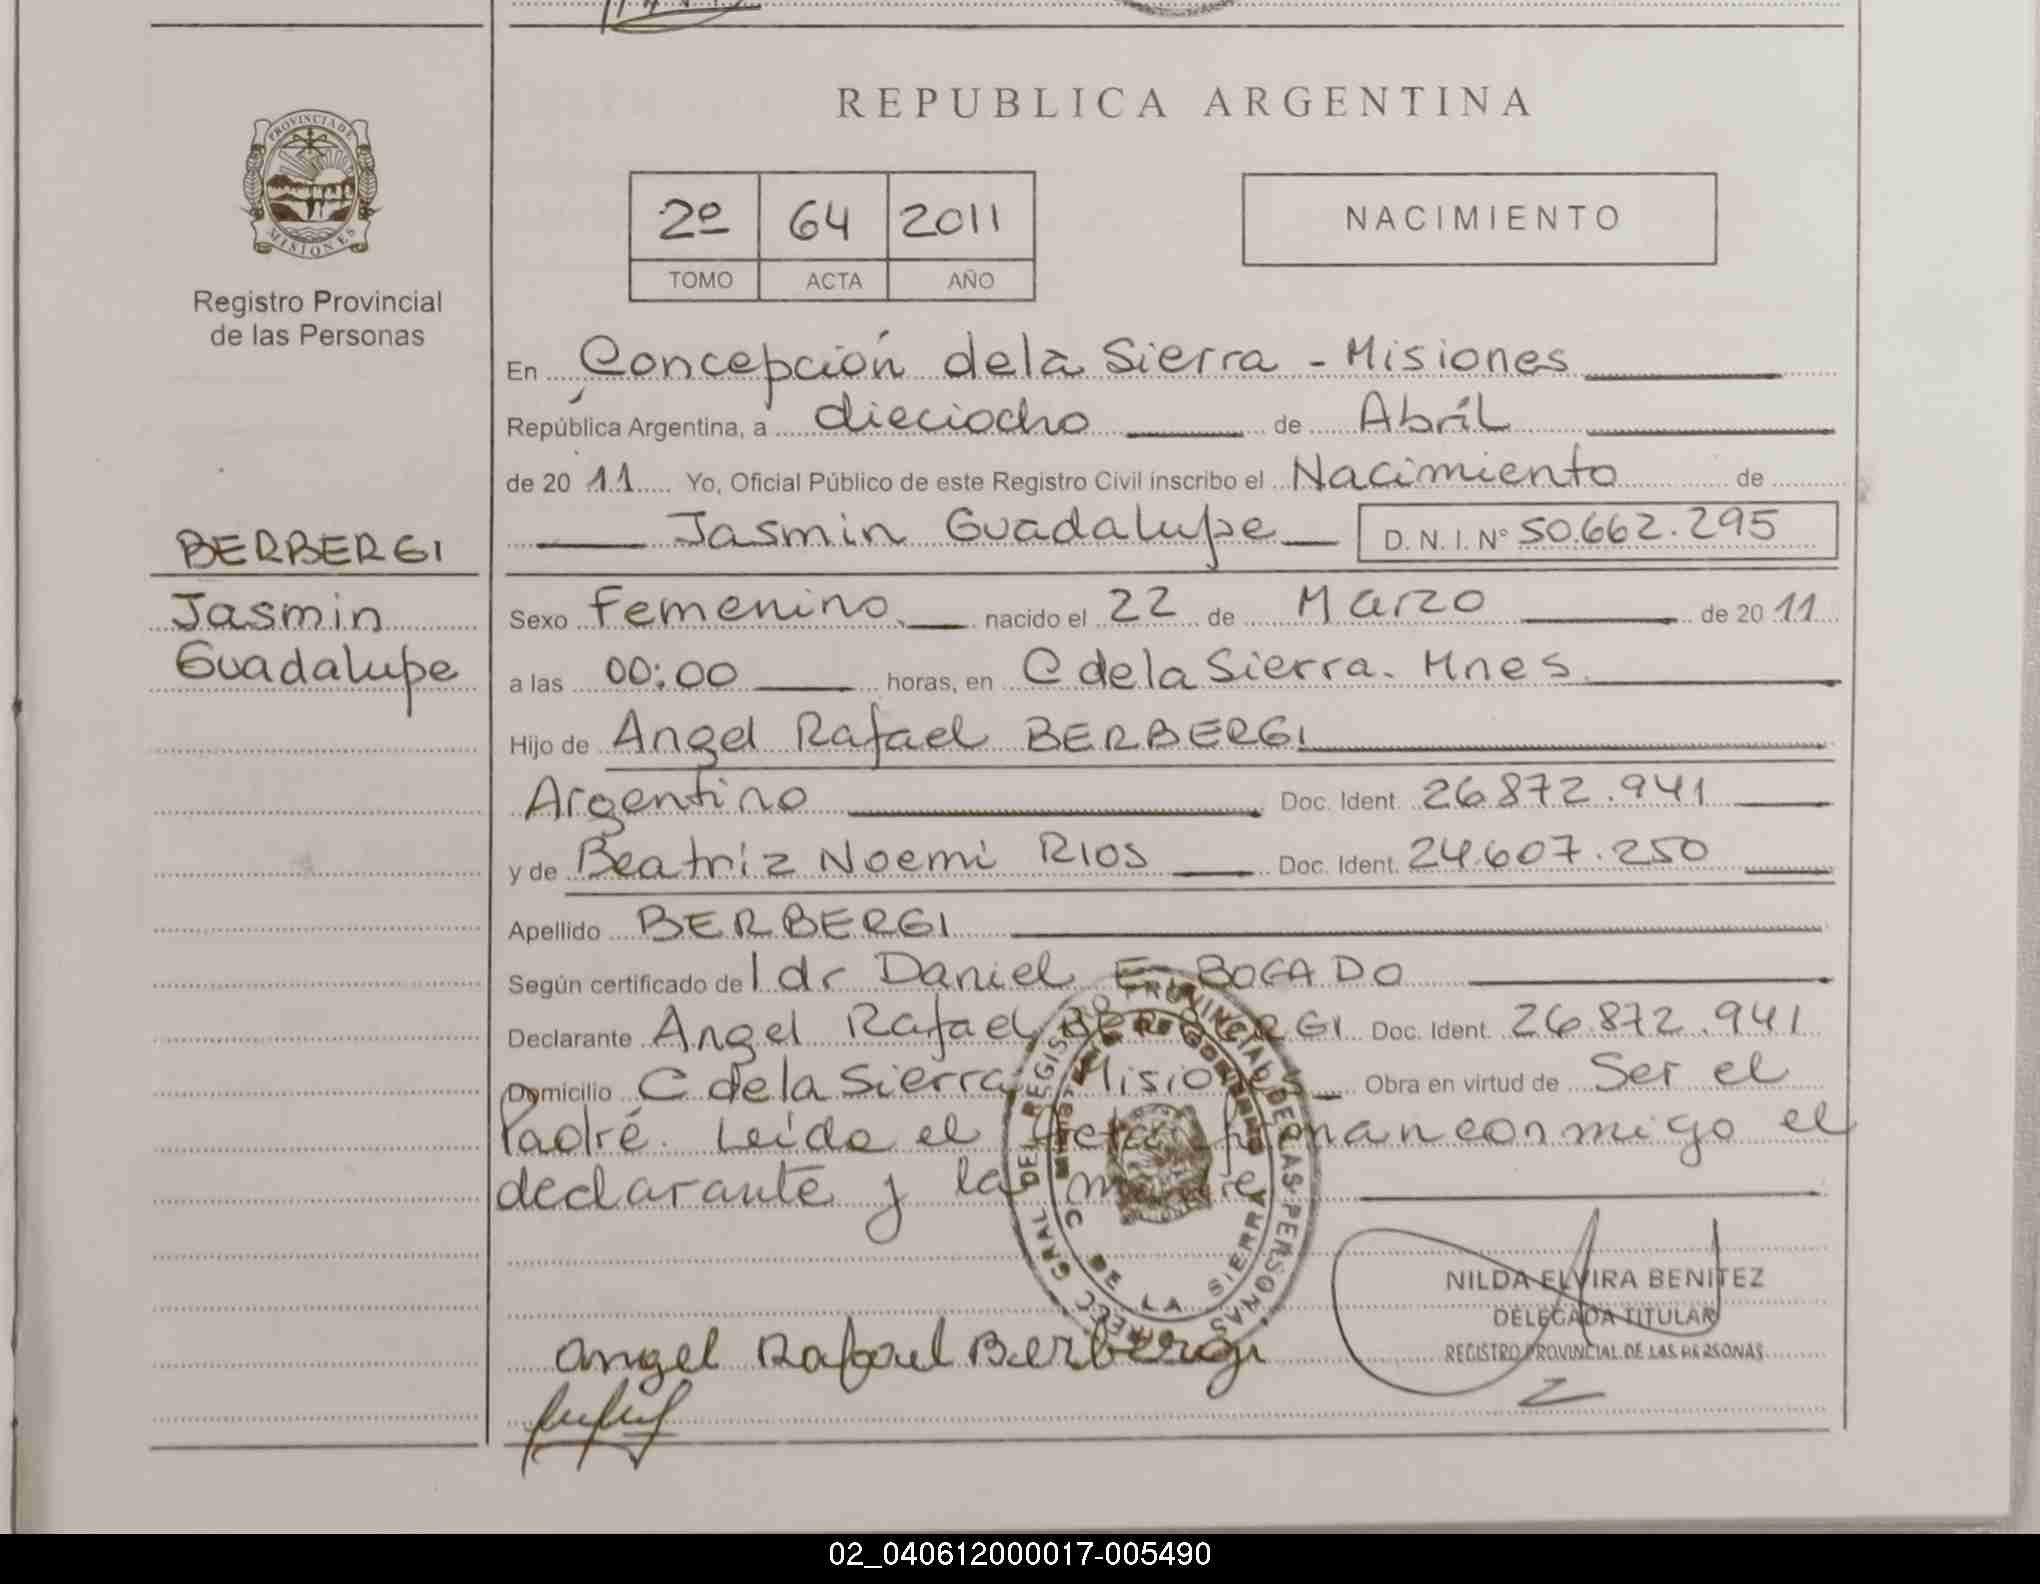 PROVINCIA DE
MISIONES
Registro Provincial
de las Personas
BERBERGI
Jasmin
Guadalupe
REPUBLICA ARGENTINA
2º 64 2011
TOMO ACTA AÑO
NACIMIENTO
En Concepción de la Sierra - Misiones
República Argentina, a dieciocho de Abril
de 2011 Yo, Oficial Público de este Registro Civil inscribo el Nacimiento de
Jasmin Guadalupe D. N. I. Nº 50.662.295
Sexo Femenino nacido el 22 de Marzo de 2011
a las 00:00 horas, en C de la Sierra. Mnes.
Hijo de Angel Rafael BERBERGI
Argentino Doc. Ident. 26.872.941
y de Beatriz Noemi RIOS Doc. Ident. 24.607.250
Apellido BERBERGI
Según certificado del dr Daniel E. BOGADO
Declarante Angel Rafael BERBERGI Doc. Ident. 26.872.941
Domicilio C de la Sierra Misiones Obra en virtud de Ser el
Padre. Leída el Acta firman conmigo el
declarante y la madre
NILDA ELVIRA BENITEZ
DELEGADA TITULAR
REGISTRO PROVINCIAL DE LAS PERSONAS
Angel Rafael Berbergi
DIRECC. GRAL. DEL REGISTRO PROVINCIAL DE LAS PERSONAS
MINISTERIO DE GOBIERNO
C. DE LA SIERRA
02_040612000017-005490